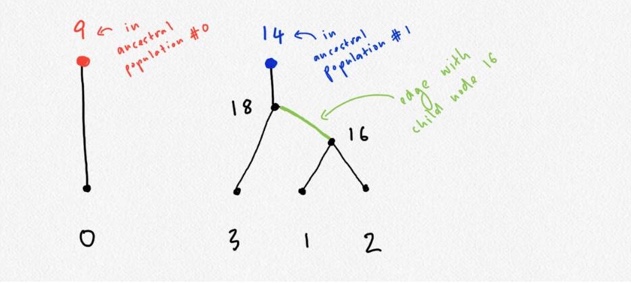 9 ← in
ancestral
population #0
14 ← in
ancestral
population #1
18
edge with
child node 16
16
0
3
1
2